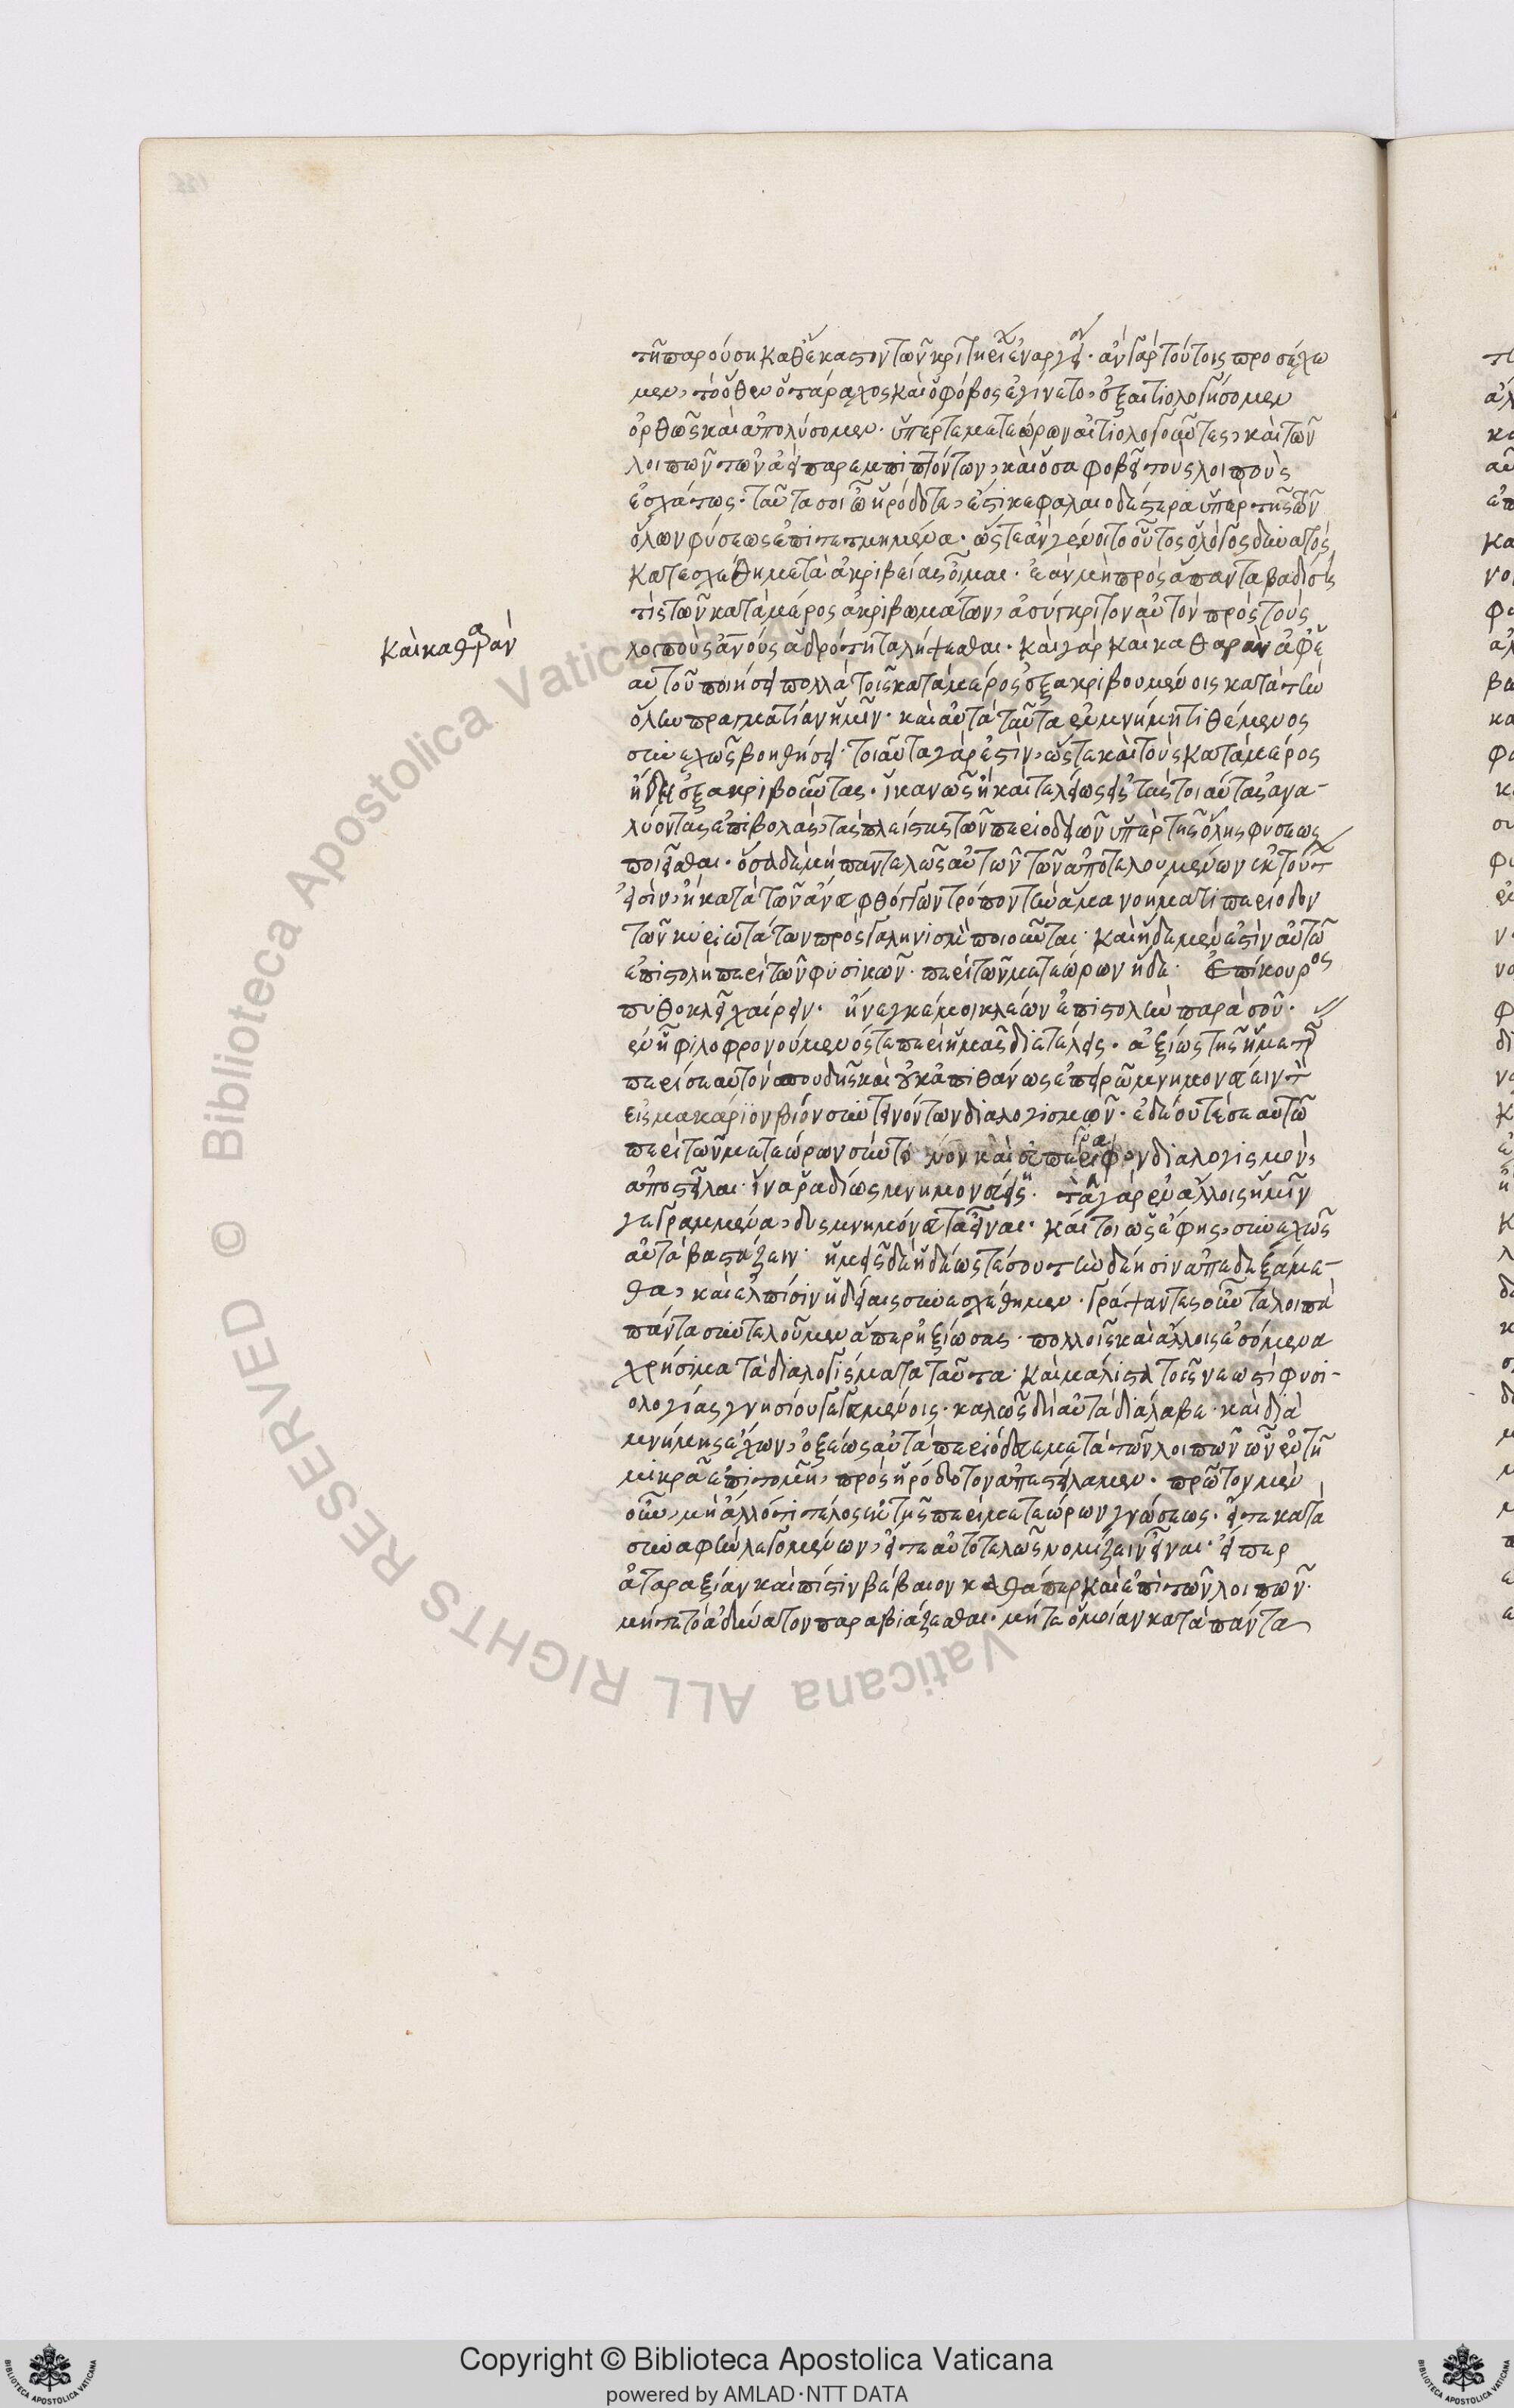 τῆ παρούση καθ' ἕκαστον τῶν κριτηρίων ἐναργεῖ. ἀν γὰρ τούτοις προσέχω
μεν, τὸ ὅθεν ὁ τάραχος καὶ ὁ φόβος ἐγίνετο, ἐξαιτιολογήσομεν
ὀρθῶς καὶ ἀπολύσομεν. ὑπέρ τε μετεώρων αἰτιολογοῦντες, καὶ τῶν
λοιπῶν τῶν ἀεὶ παρεμπιπτόντων, καὶ ὅσα φοβεῖ τοὺς λοιποὺς
ἐσχάτως. ταῦτά σοι ὦ ἡρόδοτε, ἐστὶ κεφαλαιοδέστερα ὑπὲρ τῆς τῶν
ὅλων φύσεως ἐπιτετμημένα. ὥστε ἀν γένοιτο οὗτος ὁ λόγος δυνατός,
κατεσχέθη μετὰ ἀκριβείας οἶμαι. ἐὰν μὴ πρὸς ἅπαντα βαδίση
τὶς τῶν κατὰ μέρος ἀκριβωμάτων, ἀσύγκριτον αὐτὸν πρὸς τοὺς
καὶ καθαρὰν
λοιποὺς ἀνους ἁδρότητα λήψεσθαι. καὶ γὰρ καὶ καθαρὰν ἀφ' ἑ
αυτοῦ ποιήσει πολλὰ τοῖς κατὰ μέρος ἐξακριβουμένοις κατὰ τὴν
ὅλην πραγματίαν ἡμῖν. καὶ αὐτὰ ταῦτα ἐν μνήμη τιθέμενος
συνεχῶς βοηθήσει. τοιαῦτα γάρ ἐστιν, ὥστε καὶ τοὺς κατὰ μέρος
ἤδη ἐξακριβοῦντας. ἱκανῶς ἢ καὶ τελείως εἰς τὰς τοιαύτας ἀνα-
λύοντας ἐπιβολάς, τὰς πλείστας τῶν περιοδειῶν ὑπὲρ τῆς ὅλης φύσεως
ποιεῖσθαι. ὅσα δὲ μὴ παντελῶς αὐτῶν τῶν ἀποτελουμένων ἐκ τούτ
εἰσὶν, ἢ κατὰ τῶν ἄνευ φθόγγων τρόπον τὴν ἅμα νοήματι περίοδον
τῶν κυριωτάτων πρὸς γαληνισμὸν ποιοῦνται. καὶ ἥδε μέν ἐστιν αὐτῶ
ἐπιστολὴ περὶ τῶν φυσικῶν. περὶ τῶν μετεώρων ἥδε. Ἐπίκουρος
πυθοκλεῖ χαίρειν. ἤνεγκέ μοι κλέων ἐπιστολὴν παρὰ σοῦ.
ἐν ἧ φιλοφρονούμενός τε περὶ ἡμᾶς διετέλεις. ἀξίως τῆς ἡμετρ
περὶ σεαυτὸν σπουδῆς καὶ οὐκ ἀπιθάνως ἐπειρῶ μνημονεύειν τ
εἰς μακάριον βίον συντεινόντων διαλογισμῶν. ἐδέου τε σεαυτῶ
περὶ τῶν μετεώρων σύντομον καὶ εὐπερίγραφον διαλογισμὸν,
ἀποστεῖλαι. ἵνα ῥαδίως μνημονεύεις. τὰ γὰρ ἐν ἄλλοις ἡμῖν
γεγραμμένα, δυσμνημόνευτα εἶναι. καί τοι ὡς ἔφης, συνεχῶς
αὐτὰ βαστάζειν. ἡμεῖς δὲ ἡδέως τέ σου τὴν δέησιν ἀπεδεξάμε-
θα, καὶ ἐλπίσιν ἡδείαις συνεσχέθημεν. γράψαντες οὖν τὰ λοιπὰ
πάντα συντελοῦμεν ἅπερ ἠξίωσας. πολλοῖς καὶ ἄλλοις ἐσόμενα
χρήσιμα τὰ διαλογίσματα ταῦτα. καὶ μάλιστα τοῖς νεωστὶ φυσι-
ολογίας γνησίου γεγευμένοις. καλῶς δὴ αὐτὰ διάλαβε. καὶ διὰ
μνήμης ἔχων, ὀξέως αὐτὰ περιόδευε μετὰ τῶν λοιπῶν ὧν ἐν τῆ
μικρᾶ ἐπιτομῆ, πρὸς ἡρόδοτον ἀπεστείλαμεν. πρῶτον μὲν
οὖν, μὴ ἄλλό τι τέλος ἐκ τῆς περὶ μετεώρων γνώσεως. εἴτε κατὰ
συναφὴν λεγομένων, εἴτε αὐτοτελῶς νομίζειν εἶναι. εἴπερ
ἀταραξίαν καὶ πίστιν βέβαιον καθάπερ καὶ ἐπὶ τῶν λοιπῶν.
μήτε τὸ ἀδύνατον παραβιάζεσθαι. μήτε ὁμοίαν κατὰ πάντα
Copyright © Biblioteca Apostolica Vaticana
powered by AMLAD·NTT DATA